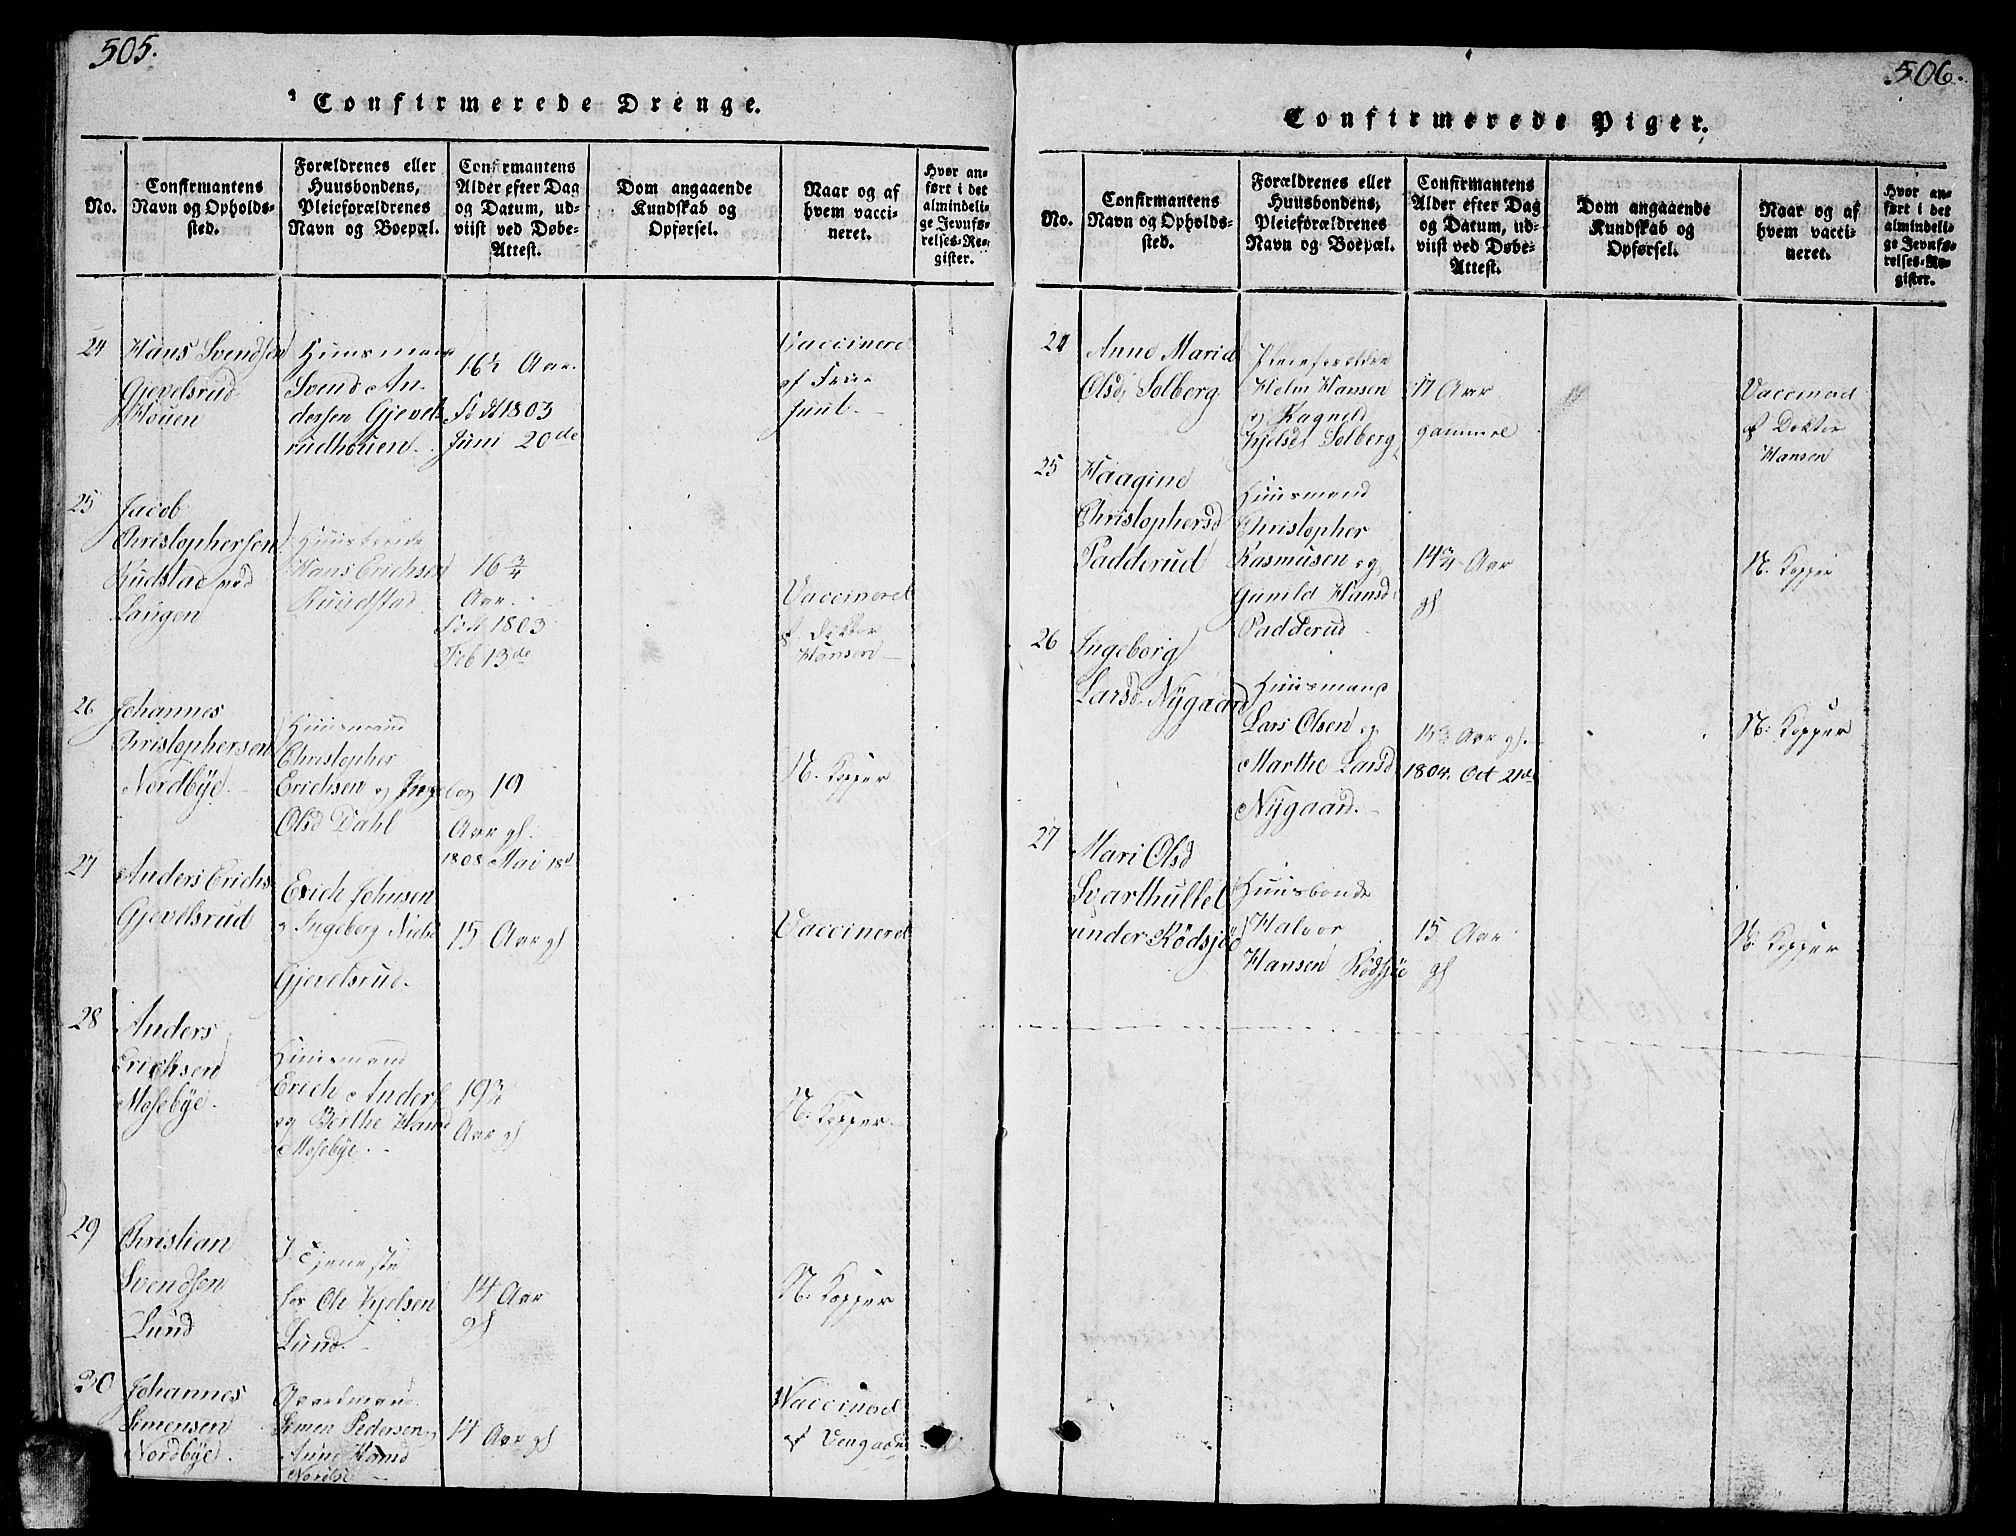 505.
Confirmerede Drenge.
No.
Confirmantens
Navn og Opholds-
sted.
Forældrenes eller
Huusbondens,
Pleieforældrenes
Navn og Boepæl.
Confirmantens
Alder efter Dag
og Datum, ud-
viist ved Døbe-
Attest.
Dom angaaende
Kundskab og
Opførsel.
Naar og af
hvem vacci-
neret.
Hvor an-
ført i det
almindeli-
ge Jevnfø-
relses-Re-
gister.
24
Hans Svendsen
Gjevelsrud
Houen
Huusmand
Svend An-
dersen Gjevels
rudhouen.
16½ Aar.
Født 1803
Juni 20de
Vaccineret
af Frue
Juul.
25
Jacob
Christophersen
Rudstad ved
Laugen
Huusbonde
Hans Erichsen
Ruudstad.
16 3/4
Aar.
Født 1803
Feb 13de
Vaccineret
af Doktor
Hansen
26
Johannes
Christophersen
Nordbÿe.
Huusmand
Christopher
Erichsen og Ingeborg
Olsd Dahl
19
Aar gl.
1808 Mai 18d
N. Kopper
27
Anders Erichs.
Gjevelsrud
Erich Johnsen
og Ingeborg Nielsd
Gjevelsrud.
15 Aar gl
Vaccineret
28
Anders
Erichsen
Mosebÿe.
Huusmand
Erich Anders.
og Berthe Hansd
Mosebÿe.
19 3/4
Aar gl
N. Kopper.
29
Christian
Svendsen
Lund
I Tjeneste
hos Ole Kjelsen
Lund.
14 Aar
gl
N. Kopper
30
Johannes
Simensen
Nordbÿe.
Gaardmand
Simen Pedersen og
Anne Hansd
14 Aar gl
Vaccineret
af
506.
Confirmerede Piger.
No.
Confirmantens
Navn og Opholds-
sted.
Forældrenes eller
Huusbondens,
Pleieforældrenes
Navn og Boepæl.
Confirmantens
Alder efter Dag
og Datum, ud-
viist ved Døbe-
Attest.
Dom angaaende
Kundskab og
Opførsel.
Naar og af
hvem vacci-
neret.
Hvor an-
ført i det
almindeli-
ge Jevnfø-
relses-Re-
gister.
24
Anne Maria
Olsd. Solberg
Pleieforældre
Holm Hansen
og Ragnild
Kjelsd. Solberg
17 Aar
gammel
Vaccineret
af Doktor
Hansen
25
Haagine
Christophersd
Padderud
Huusmand
Christopher
Rasmusen og
Gunild Hansd.
Padderud
14 3/4 Aar
gl
N. Kopper
26
Ingeborg
Larsd. Nÿgaard
Huusmand
Lars Olsen og
Marthe Larsd
Nÿgaard.
Aar gl.
1804. Oct 21de
N. Kopper
27
Mari Olsd
Svarthullet
under Rödsjöe
Huusbonde
Halvor
Hansen Rødsjøe
15 Aar
gl
N. Kopper